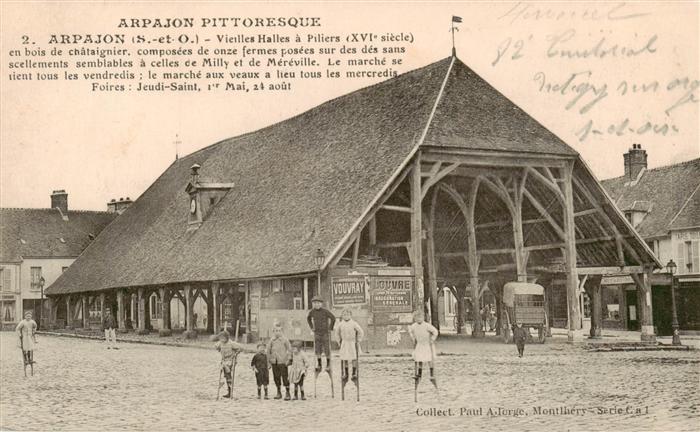 ARPAJON PITTORESQUE
2. ARPAJON (S.-et-O.) - Vieilles Halles à Piliers (XVIe siècle)
en bois de châtaignier, composées de onze fermes posées sur des dés sans
scellements semblables à celles de Milly et de Méréville. Le marché se
tient tous les vendredis ; le marché aux veaux a lieu tous les mercredis
Foires : Jeudi-Saint, 1er Mai, 24 août
82e Territorial
VOUVRAY
LOUVRE
INAUGURATION
GÉNÉRALE
Collect. Paul Allorge, Montlhéry - Série C a 1